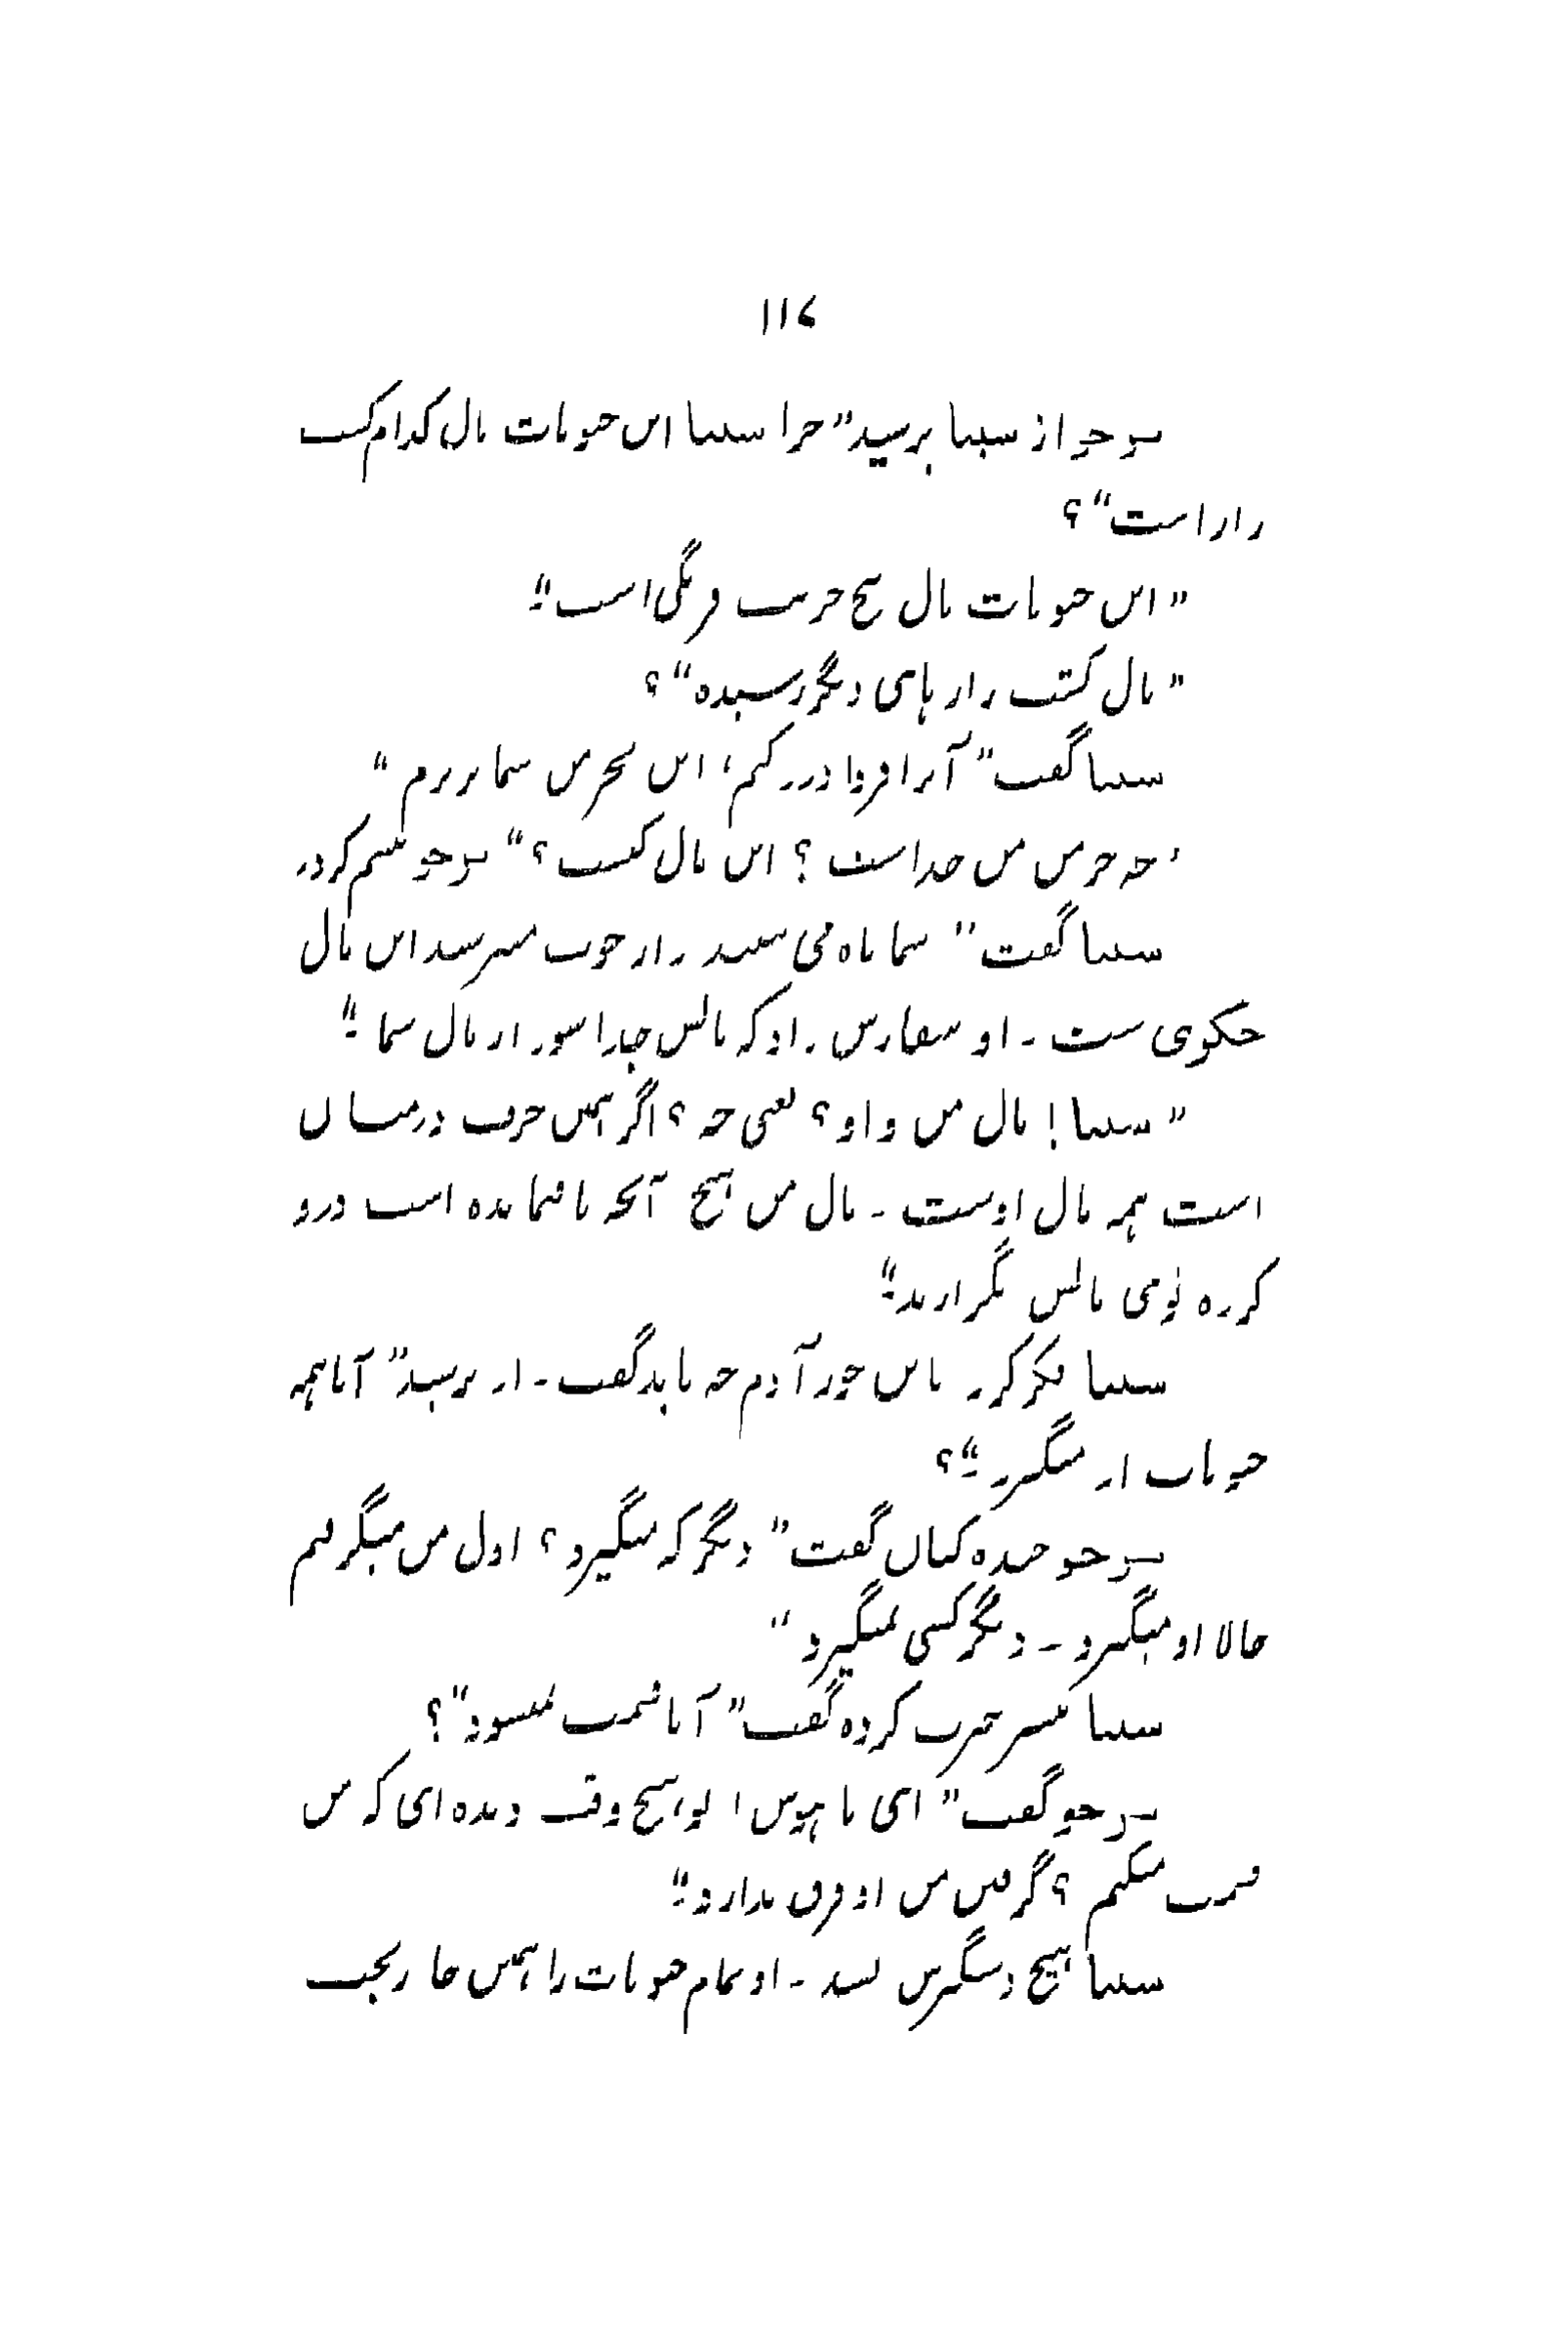 ۱۱۷
سوجو از سیتا پرسید” چرا سیتا این حبوبات مال کدام کشت
زار است“؟
” این حبوبات مال پنج حریب فرنگی است“۔
” مال کشت زارهای دیگر رسیده“؟
سیتا گفت” آنرا فردا درو کنم، این نخرمن شما بردم “
”چه خرمن من جداست ؟ این مال کیست؟“ سوجو تبسم کرد۔
سیتا گفت” شما ماه می بینید زار خوب میرسد این مال
جنکوی ست ۔ او سفارش داد که مالش جدا شود از مال شما ۔“
” سیتا! مال من و او؟ یعنی چه؟ اگر همین حرف درمیان
است همه مال اوست ۔ مال من هیچ آنچه باقیمانده است درو
کرده توی مالش بگذارید“۔
سیتا فکر کرد باین جور آدم چه باید گفت ۔ از پرسید” آیا همه
حبوبات او میگیرد“۔؟
سوجو خنده کنان گفت” دیگر که میگیرد؟ اول من میگرفتم
حالا او میگیرد ۔ دیگر کسی نمیگیرد “
سیتا کرده گفت” آیا قسمت نمیشود“؟
سوجو گفت” ای با هوش! تو، هیچ وقت دیده ای که من
قسمت میکنم ؟ گرفتن من او فرق ندارد“۔
سیتا هیچ دستگیرش نشد ۔ او تمام حبوبات را همین جا ریخت